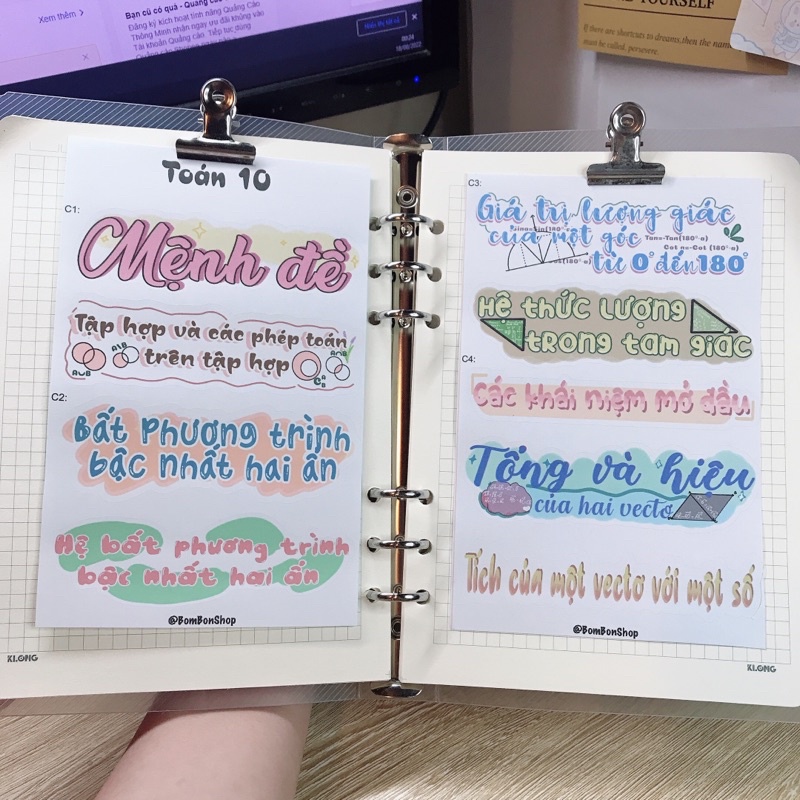 Xem thêm >
Bạn cũ có quà - Quảng cáo
Đăng ký kích hoạt tính năng Quảng Cáo
Thông Minh nhận ngay ưu đãi khủng vào
Tài khoản Quảng cáo. Tiếp tục dùng
If there are shortcuts to dreams, then the name
must be called, persevere.
Toán 10
C1:
Mệnh đề
Tập hợp và các phép toán
trên tập hợp
A∪B
A\B
A∩B
C2:
Bất Phương trình
bậc nhất hai ẩn
Hệ bất phương trình
bậc nhất hai ẩn
@BomBonShop
KLONG
C3:
Giá trị lượng giác
của một góc
từ 0° đến 180°
Tanα=-Tan(180°-α)
Cot α=-Cot (180°-α)
Hệ thức lượng
trong tam giác
C4:
Các khái niệm mở đầu
Tổng và hiệu
của hai vectơ
Tích của một vectơ với một số
@BomBonShop
KLONG